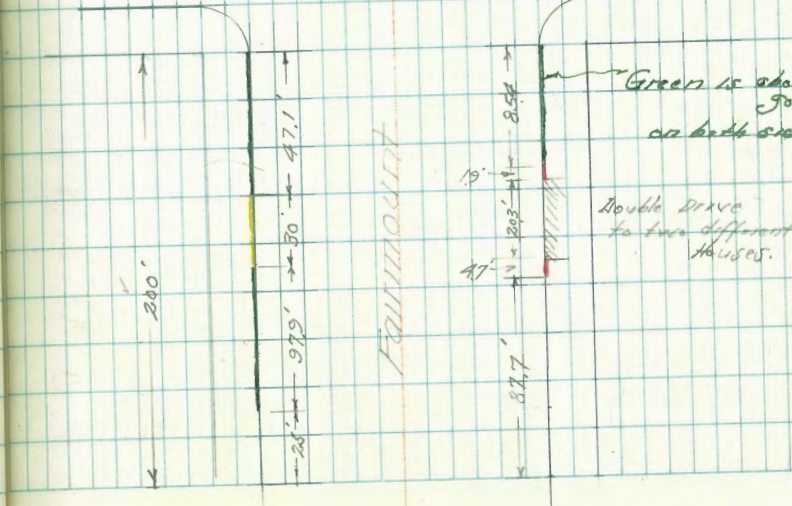 200'
47.1'
30'
97.9'
25'
Fairmount
85.4
1.9'
20.3'
4.7'
87.7'
Green is abo
go
on both
Double Drive
to two different
Houses.